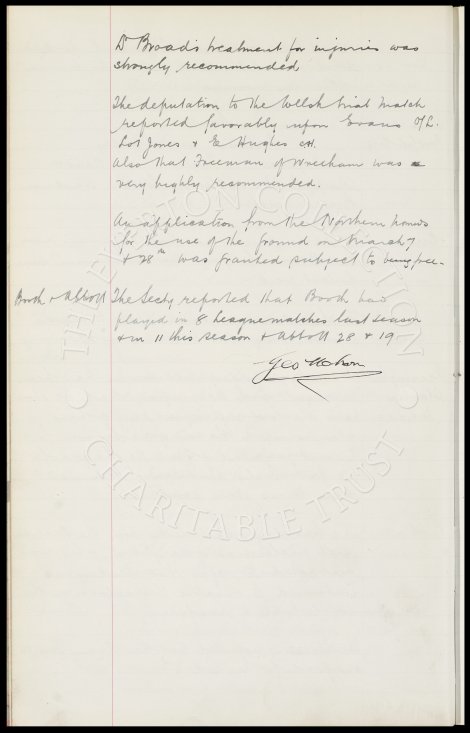 Dr Broad's treatment for injuries was
strongly recommended
The deputation to the Welsh trial match
reported favorably upon Evans O/L.
Lot Jones & E Hughes CH.
Also that Freeman of Wrexham was
very highly recommended.
An application from the Northern
for the use of the ground on March 7
& 28th was granted subject to being free.
Booth & Abbott The Secty reported that Booth had
played in 8 League matches last season
& in 11 this season & Abbott 28 & 19
Geo Mahon
THE EVERTON COLLECTION
CHARITABLE TRUST